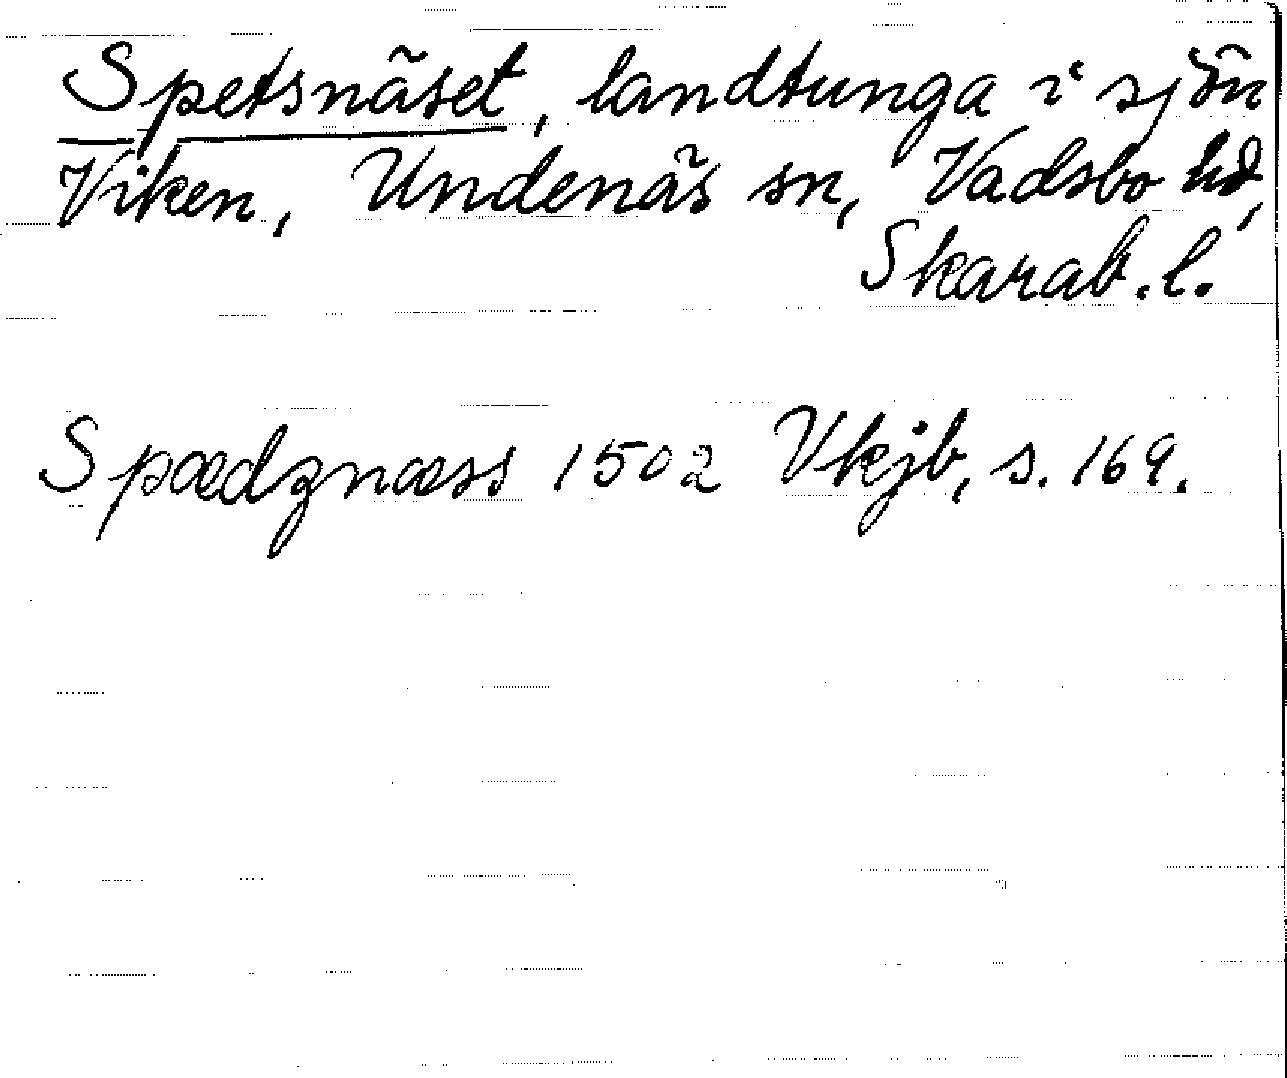 Spetsnäset, landtunga i sjön
Viken, Undenäs sn, Vadsbo hd,
Skarab. l.
Spædznæss 1502 Vkjb, s. 169.